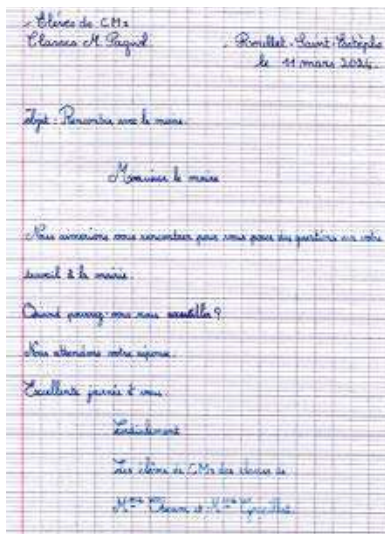 Élèves de CM2
Classes M. Pagnol
Roullet-Saint-Estèphe
le 11 mars 2024.
Objet : Rencontre avec le maire.
Monsieur le maire
Nous aimerions vous rencontrer pour vous poser des questions sur votre
travail à la mairie.
Quand pourrez-vous nous accueillir ?
Nous attendons votre réponse.
Excellente journée à vous
Cordialement
Les élèves de CM2 des classes de
Mme et Mme